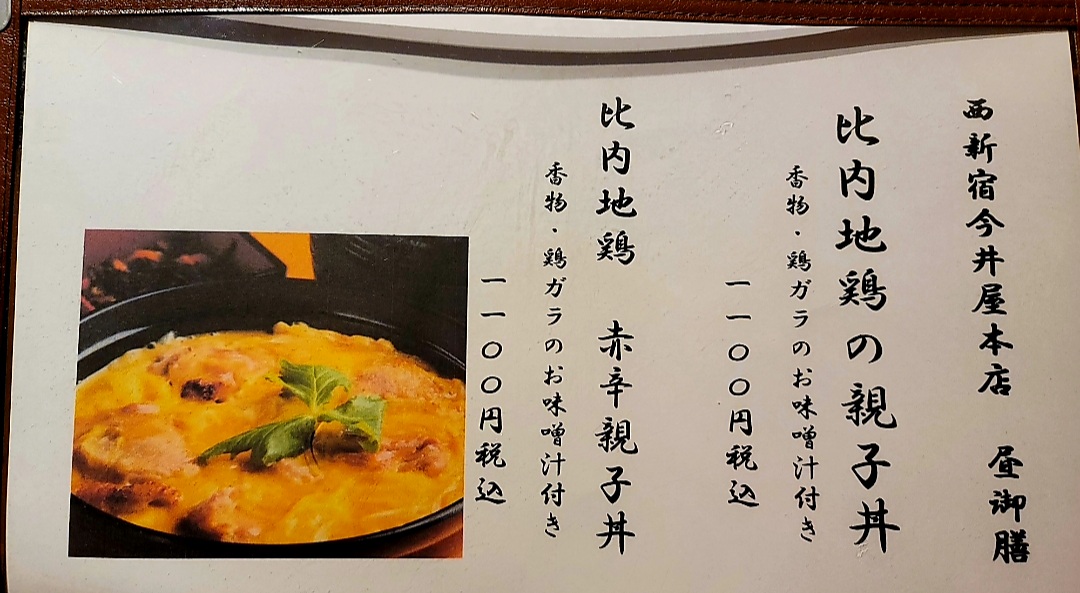 西新宿今井屋本店　昼御膳
比内地鶏の親子丼
香物・鶏ガラのお味噌汁付き
一一〇〇円税込
比内地鶏　赤辛親子丼
香物・鶏ガラのお味噌汁付き
一一〇〇円税込